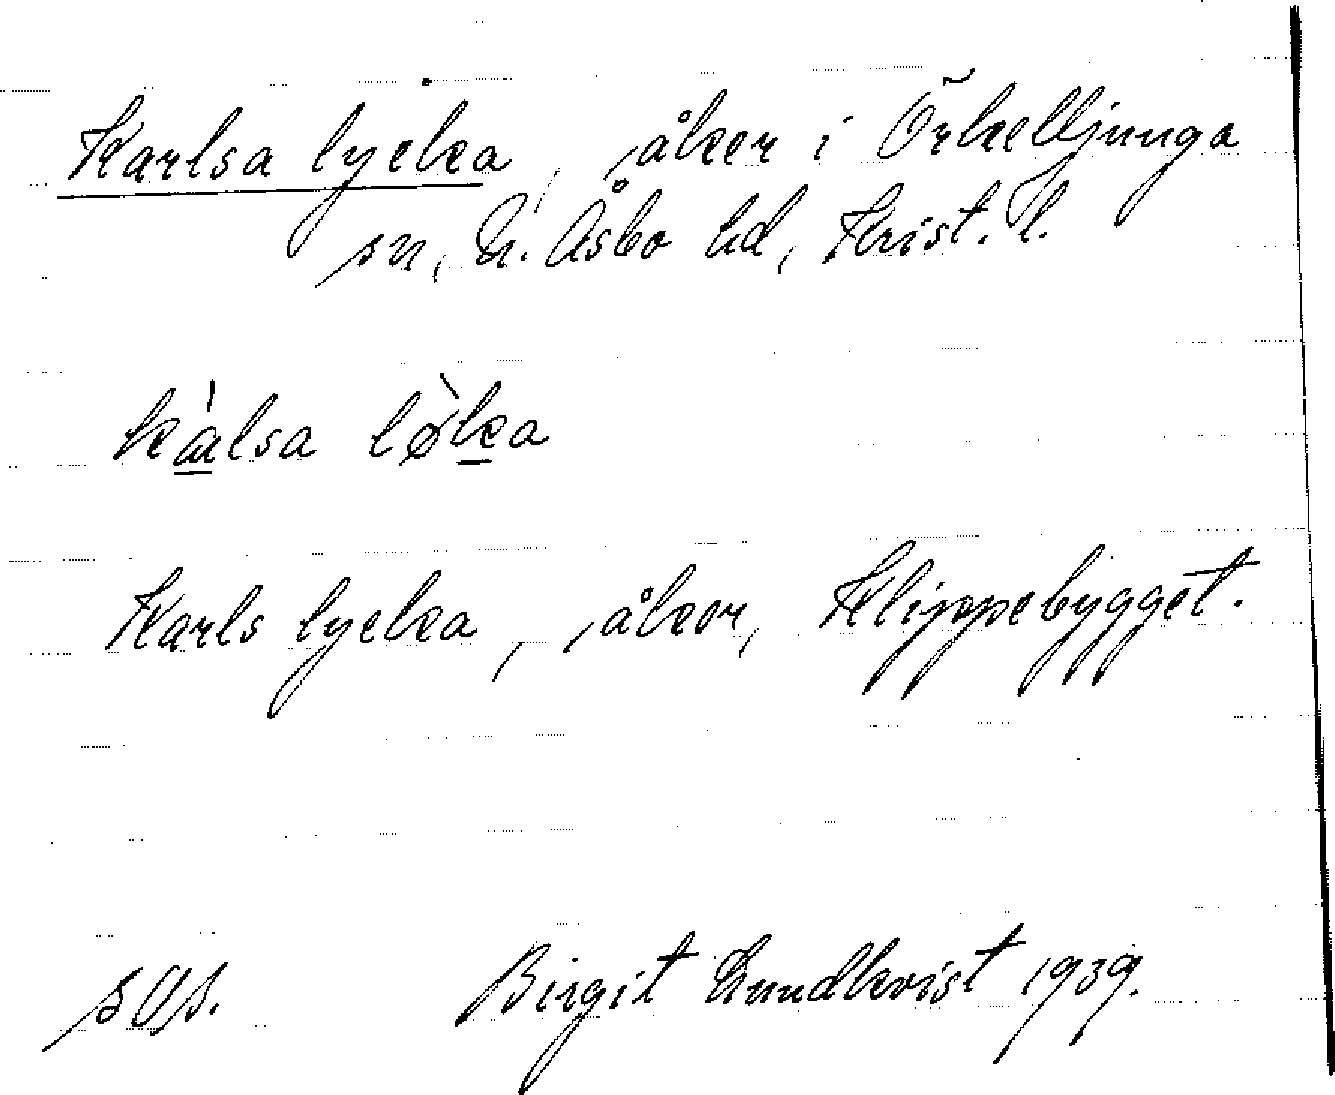 Karlsa lycka, åker i Örkelljunga
sn, N. Åsbo hd, Krist. l.
kàlsa lø̀ka
Karls lycka, åker, Klippebygget.
sOs. Birgit Lundkvist 1939.